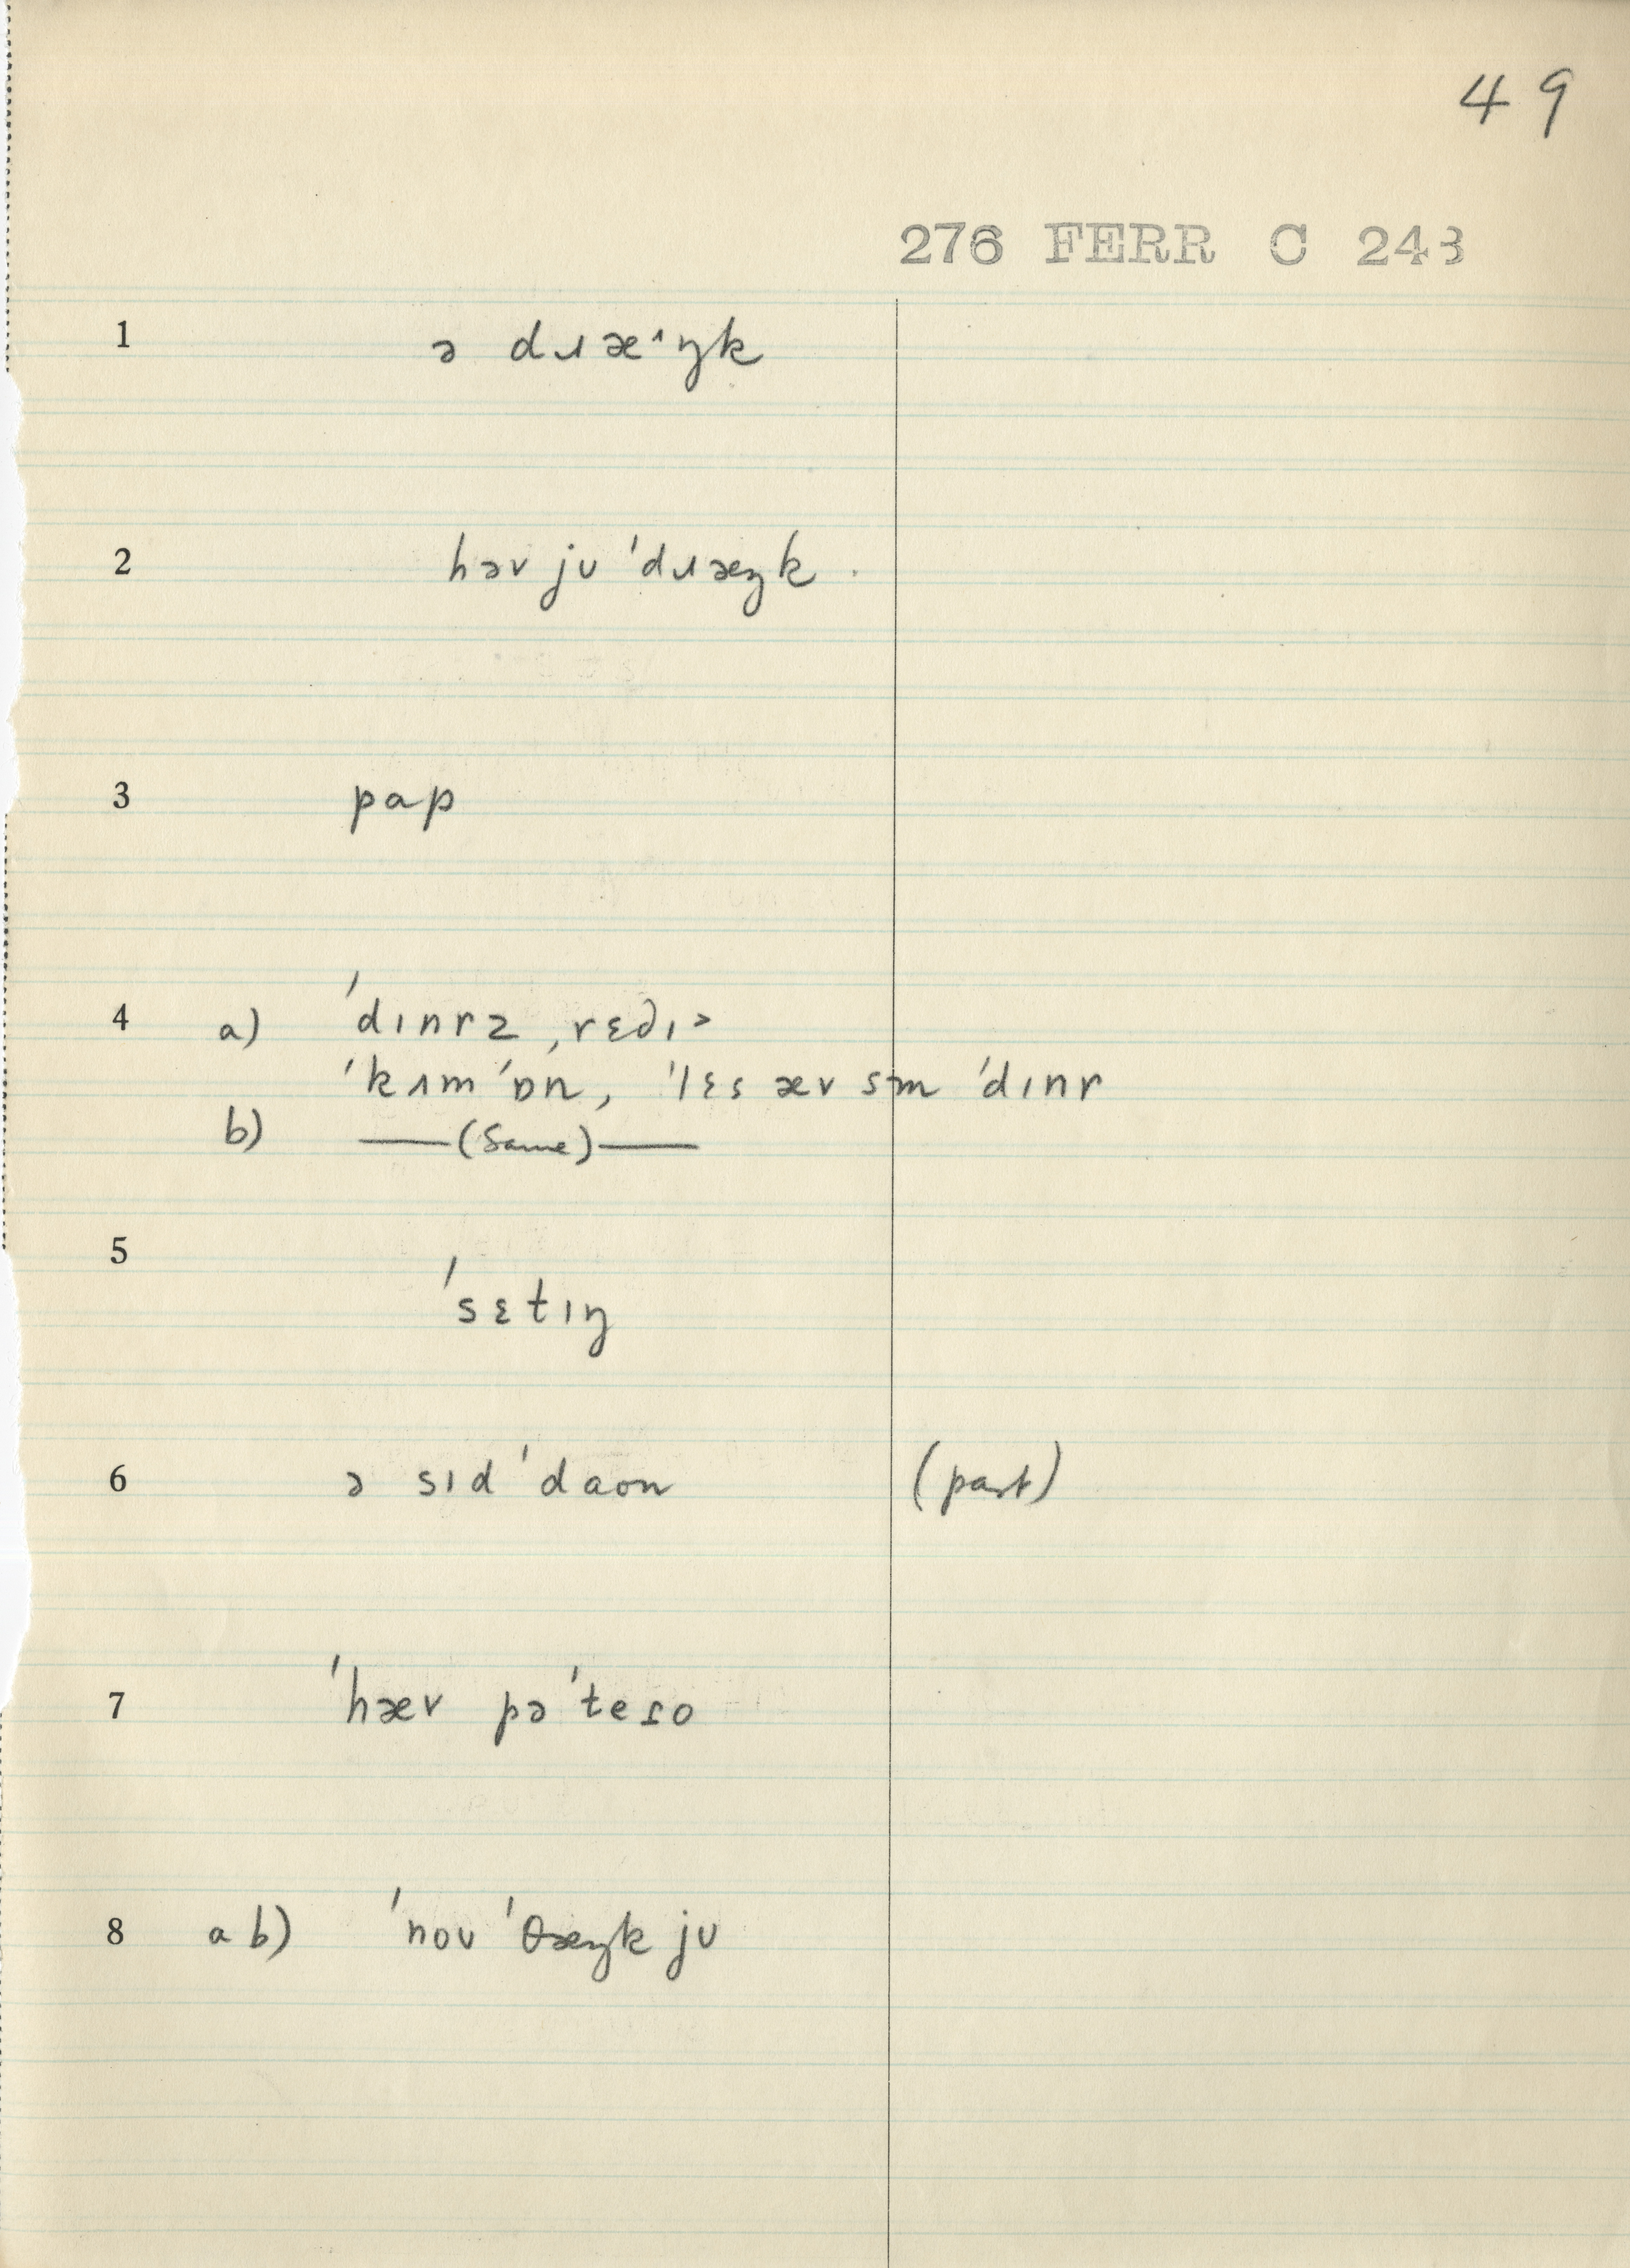 49
276 FERR C 243
1 ə dɹæ˄ŋk
2 həv jʊ 'dɹæŋk .
3 pap
4 a) 'dɪnrz ˌrɛdɪ>
'kʌm 'ɒn, 'lɛs æv sm 'dɪnr
b) —(Same)—
5 'sɛtɪŋ
6 ə sɪd 'daʊn (part)
7 'hæv pə'teɾo
8 a b) 'noʊ 'θæŋk jʊ